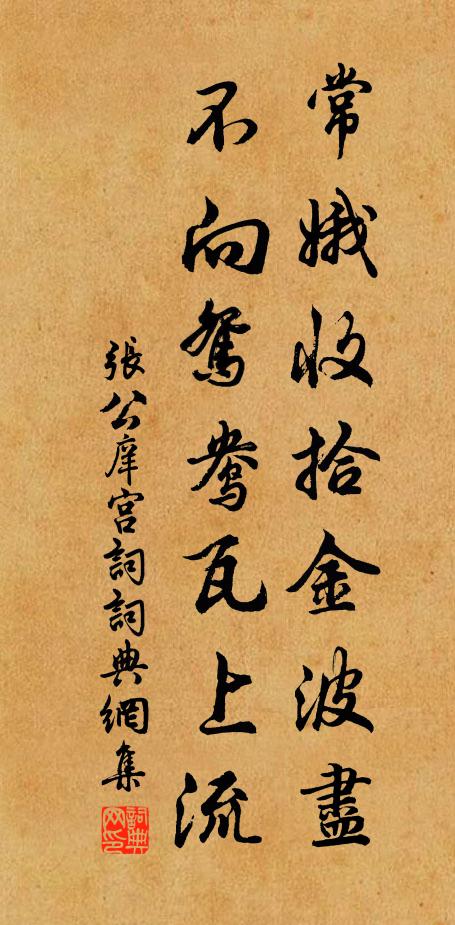 常娥收拾金波盡
不向鴛鴦瓦上流
張公庠宮詞詞典網集
詞典网印